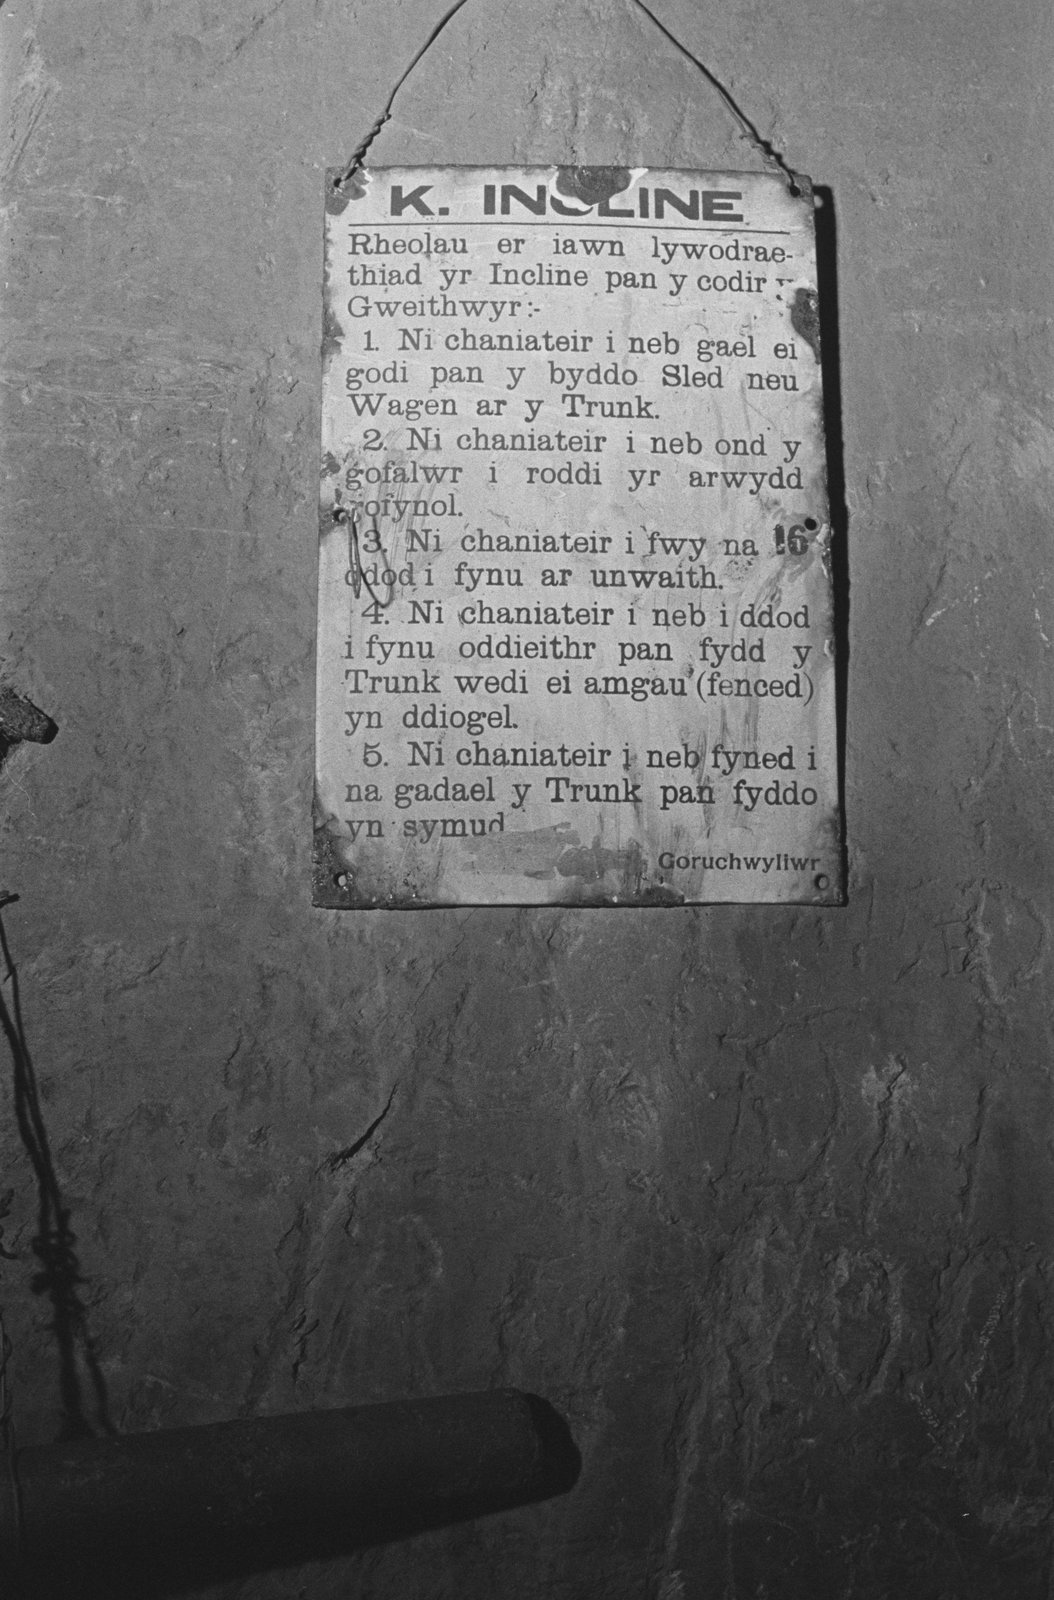 K. INCLINE
Rheolau er iawn lywodrae-
thiad yr Incline pan y codir y
Gweithwyr:-
1. Ni chaniateir i neb gael ei
godi pan y byddo Sled neu
Wagen ar y Trunk.
2. Ni chaniateir i neb ond y
gofalwr i roddi yr arwydd
rofynol.
3. Ni chaniateir i fwy na 16
ddod i fynu ar unwaith.
4. Ni chaniateir i neb i ddod
i fynu oddieithr pan fydd y
Trunk wedi ei amgau (fenced)
yn ddiogel.
5. Ni chaniateir i neb fyned i
na gadael y Trunk pan fyddo
yn symud
Goruchwyliwr